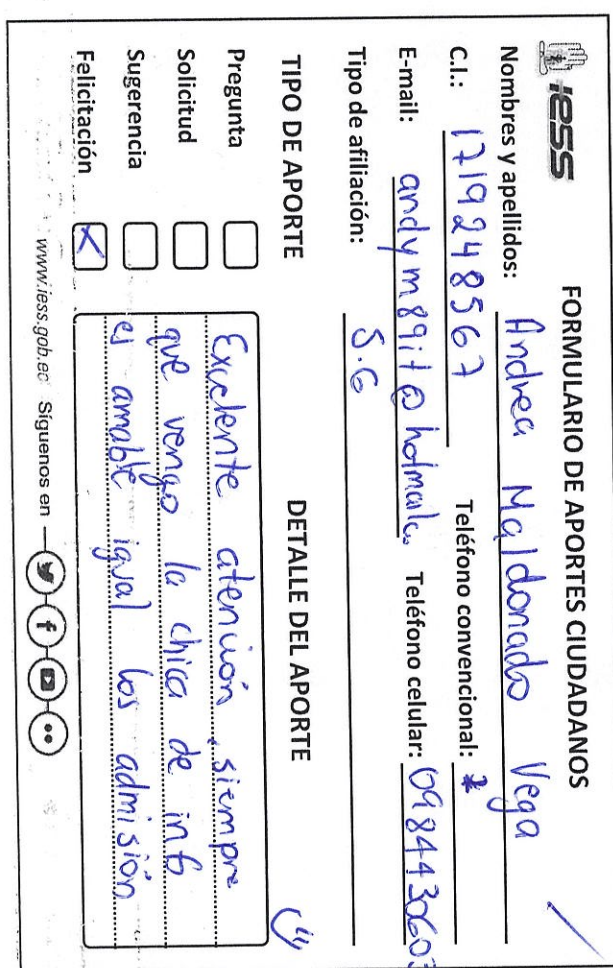 iess
FORMULARIO DE APORTES CIUDADANOS
Nombres y apellidos: Andrea Maldonado Vega
C.I.: 1719248567 Teléfono convencional:
E-mail: andym89it@hotmail.co Teléfono celular: 0984430603
Tipo de afiliación: S.G
TIPO DE APORTE DETALLE DEL APORTE
Pregunta
Solicitud
Sugerencia
Felicitación X
Excelente atención, siempre
que vengo la chica de info
es amable igual los admisión
www.iess.gob.ec Síguenos en